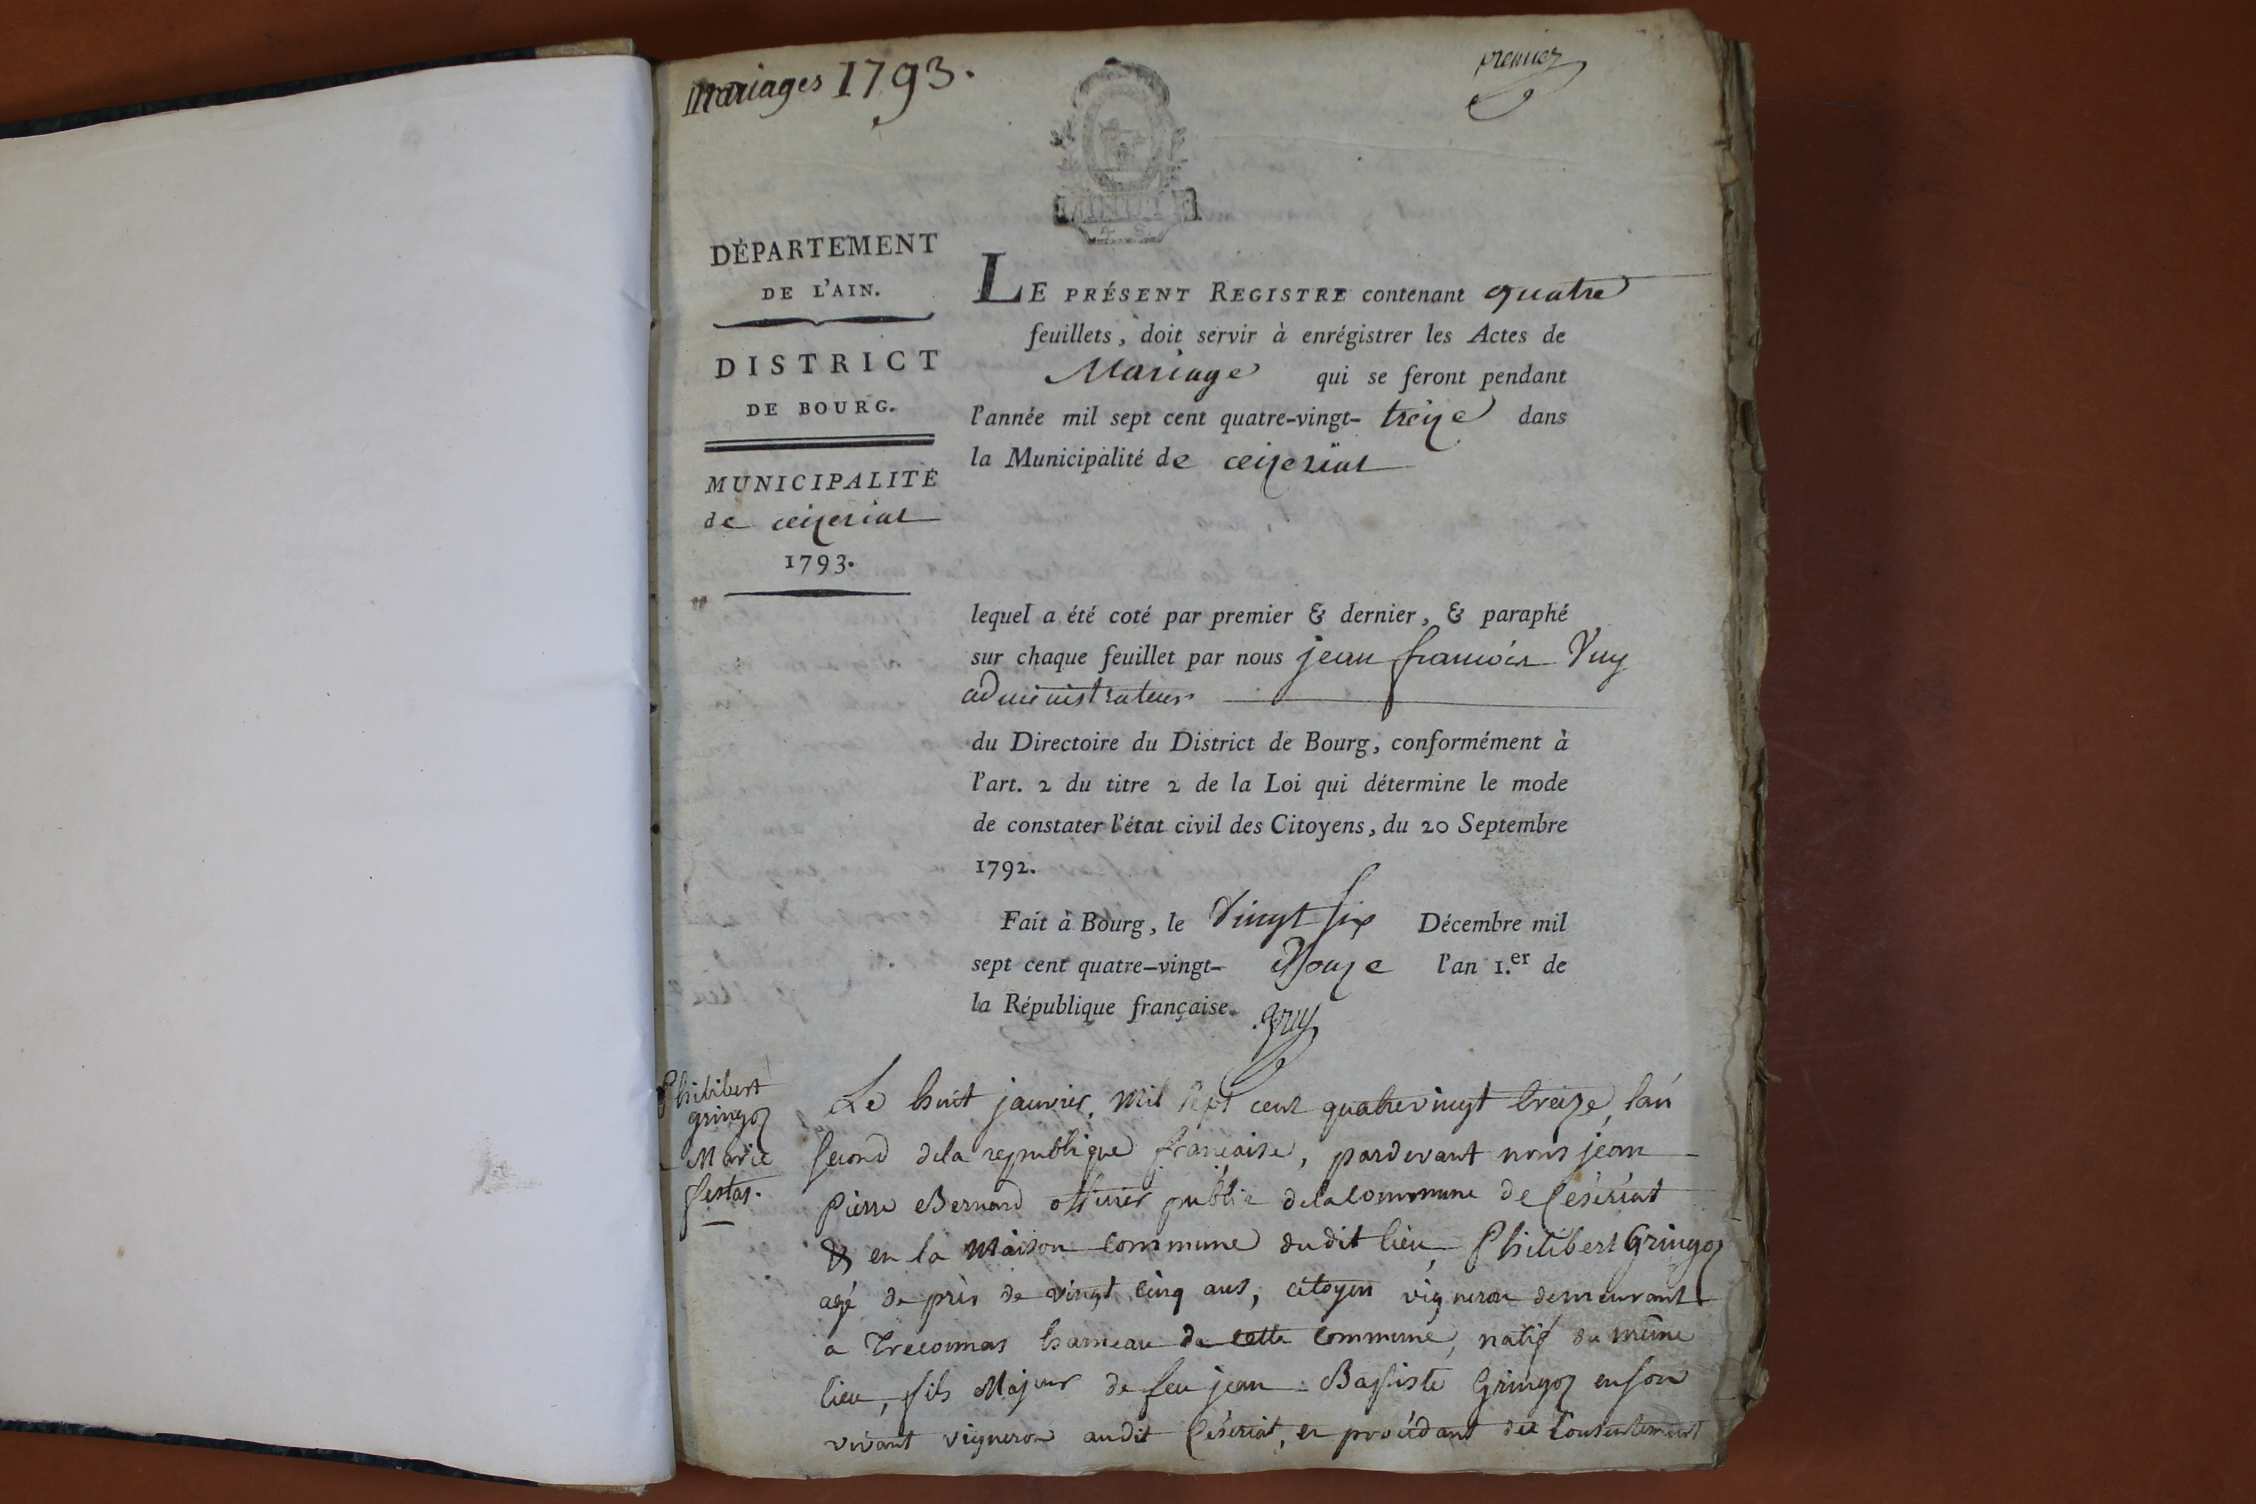 Mariages 1793.
premier
DÉPARTEMENT
DE L'AIN.
DISTRICT
DE BOURG.
MUNICIPALITÉ
de ceizeriat
1793.
LE PRÉSENT REGISTRE contenant quatre
feuillets, doit servir à enrégistrer les Actes de
Mariage qui se feront pendant
l'année mil sept cent quatre-vingt- treize dans
la Municipalité de ceizeriat
lequel a été coté par premier & dernier, & paraphé
sur chaque feuillet par nous jean françois Vuy
administrateur
du Directoire du District de Bourg, conformément à
l'art. 2 du titre 2 de la Loi qui détermine le mode
de constater l'état civil des Citoyens, du 20 Septembre
1792.
Fait à Bourg, le Vingt six Décembre mil
sept cent quatre-vingt- Douze l'an 1.er de
la République française.
Philibert
gringoz
Marie
sestas.
Le huit janvier, mil sept cent quatrevingt treize, l'an
second dela republique française, pardevant nous jean
Pierre Bernard officier public dela Commune de Céseriat
& en la Maison Commune dudit lieu, Philibert Gringoz
agé de près de vingt cinq ans, citoyen vigneron demeurant
a Treconnas hameau de cette Commune, natif du même
lieu, fils Majeur de feu jean-Baptiste Gringoz en son
vivant vigneron audit Céseriat, et procédant du Consentement